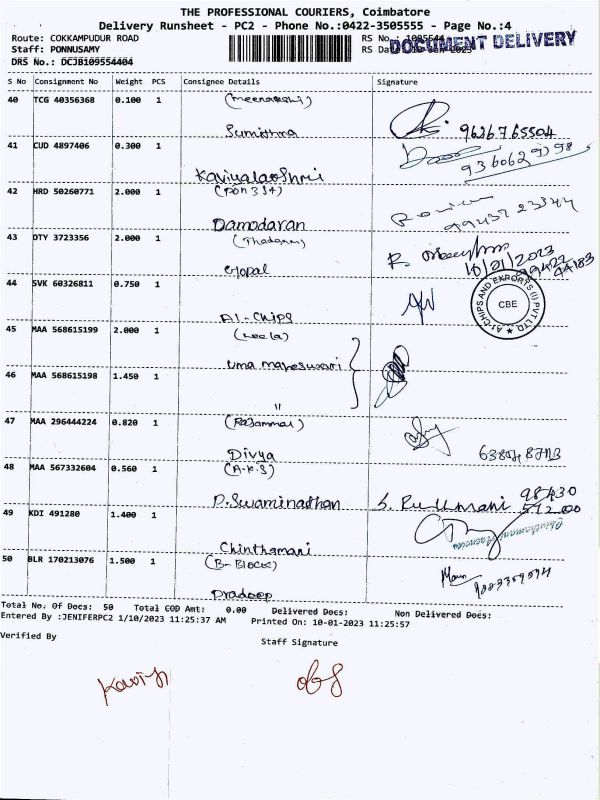 THE PROFESSIONAL COURIERS, Coimbatore
Delivery Runsheet - PC2 - Phone No.:0422-3505555 - Page No.:4
Route: COKKAMPUDUR ROAD
RS No.:
Staff: PONNUSAMY
DOCUMENT DELIVERY
DRS No.: DCJB109554404
S No Consignment No Weight PCS Consignee Details Signature
40 TCG 40356368 0.100 1 (Meenakshi)
Sumithra 9626765504
41 CUD 4897406 0.300 1
Kaviyalakshmi
42 HRD 50260771 2.000 1
Damodaran
43 DTY 3723356 2.000 1
Gopal 10/01/2023
44 SVK 60326811 0.750 1
A1-CHIPS AND EXPORTS (I) PVT LTD. CBE
A1-Chips
45 MAA 568615199 2.000 1 (Leela)
Uma Maheswari
46 MAA 568615198 1.450 1
"
47 MAA 296444224 0.820 1 (Rajammal)
Divya
48 MAA 567332604 0.560 1 (A.K.S)
P.Swaminathan
49 KDI 491280 1.400 1
Chinthamani
50 BLR 170213076 1.500 1 (B-Block)
Pradoop
Total No. Of Docs: 50 Total COD Amt: 0.00 Delivered Docs: Non Delivered Docs:
Entered By :JENIFERPC2 1/10/2023 11:25:37 AM Printed On: 10-01-2023 11:25:57
Verified By
Staff Signature